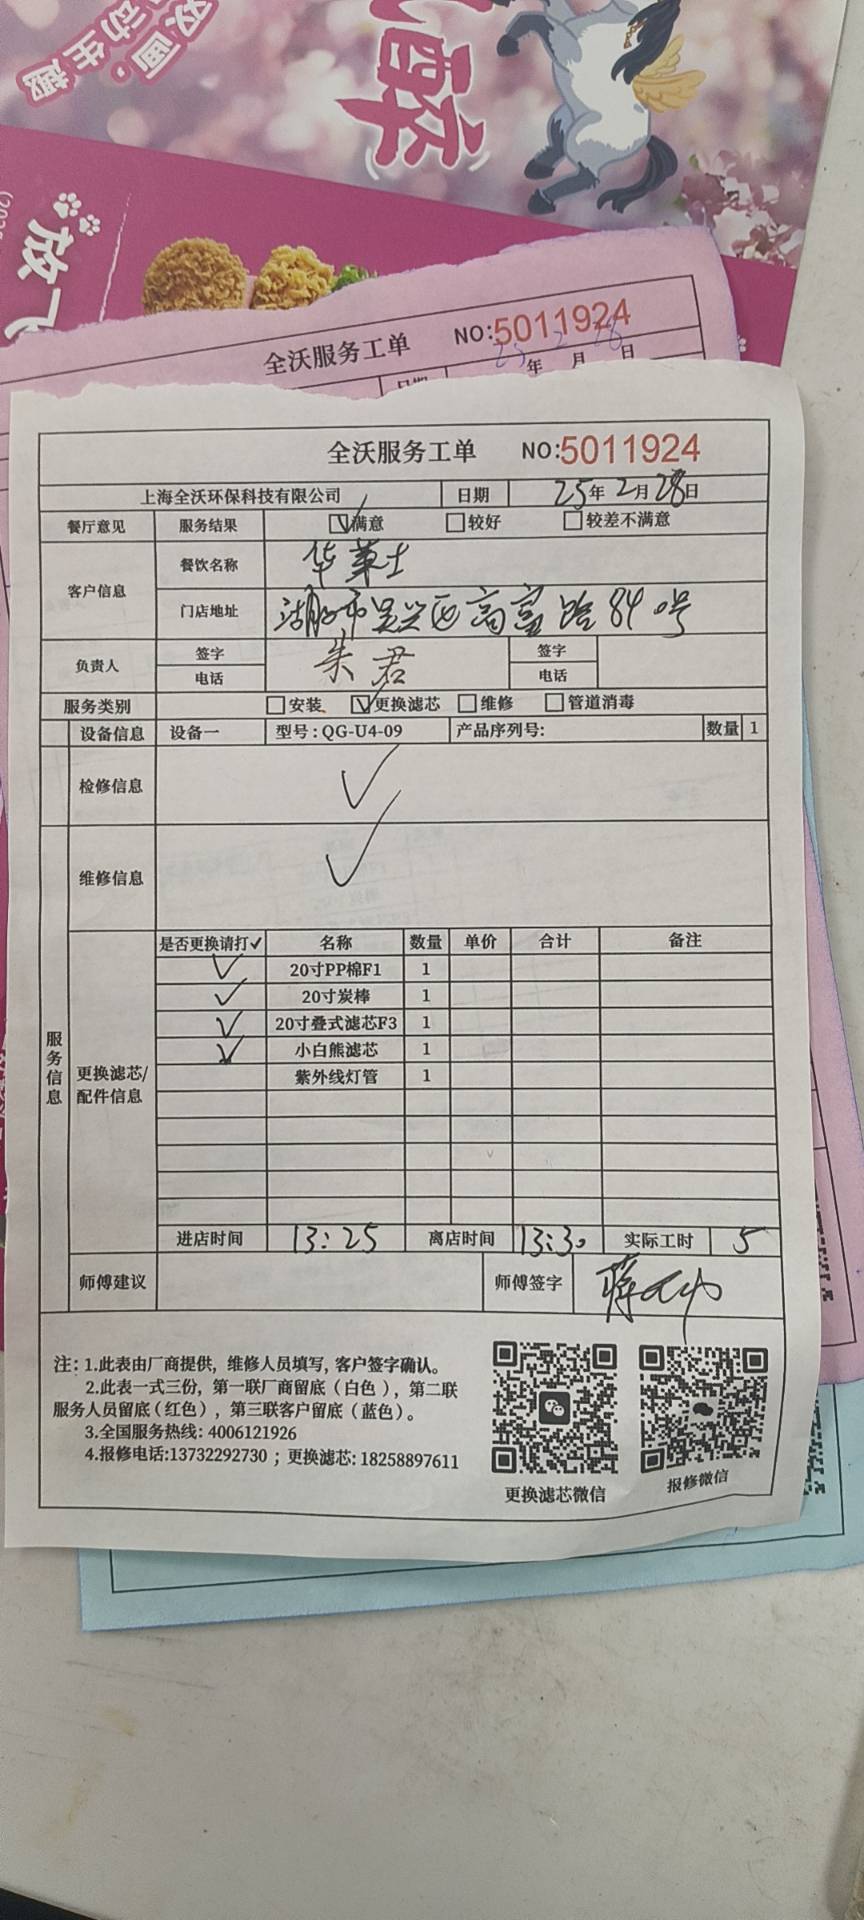 动生感
醉
放飞
全沃服务工单 NO:5011924
25年2月28日
全沃服务工单 NO:5011924
上海全沃环保科技有限公司 日期 25年2月28日
餐厅意见 服务结果 ☑满意 □较好 □较差不满意
客户信息 餐饮名称 华莱士
门店地址 湖州市吴兴区高富路84号
负责人 签字 朱君 签字
电话 电话
服务类别 □安装 ☑更换滤芯 □维修 □管道消毒
设备信息 设备一 型号:QG-U4-09 产品序列号: 数量 1
检修信息 ✓
维修信息 ✓
服务信息
更换滤芯/配件信息
是否更换请打✓ 名称 数量 单价 合计 备注
✓ 20寸PP棉F1 1
✓ 20寸炭棒 1
✓ 20寸叠式滤芯F3 1
✓ 小白熊滤芯 1
紫外线灯管 1
进店时间 13:25 离店时间 13:30 实际工时 5
师傅建议 师傅签字
注: 1.此表由厂商提供, 维修人员填写, 客户签字确认。
2.此表一式三份, 第一联厂商留底（白色）, 第二联
服务人员留底（红色）, 第三联客户留底（蓝色）。
3.全国服务热线: 4006121926
4.报修电话:13732292730 ; 更换滤芯: 18258897611
更换滤芯微信 报修微信